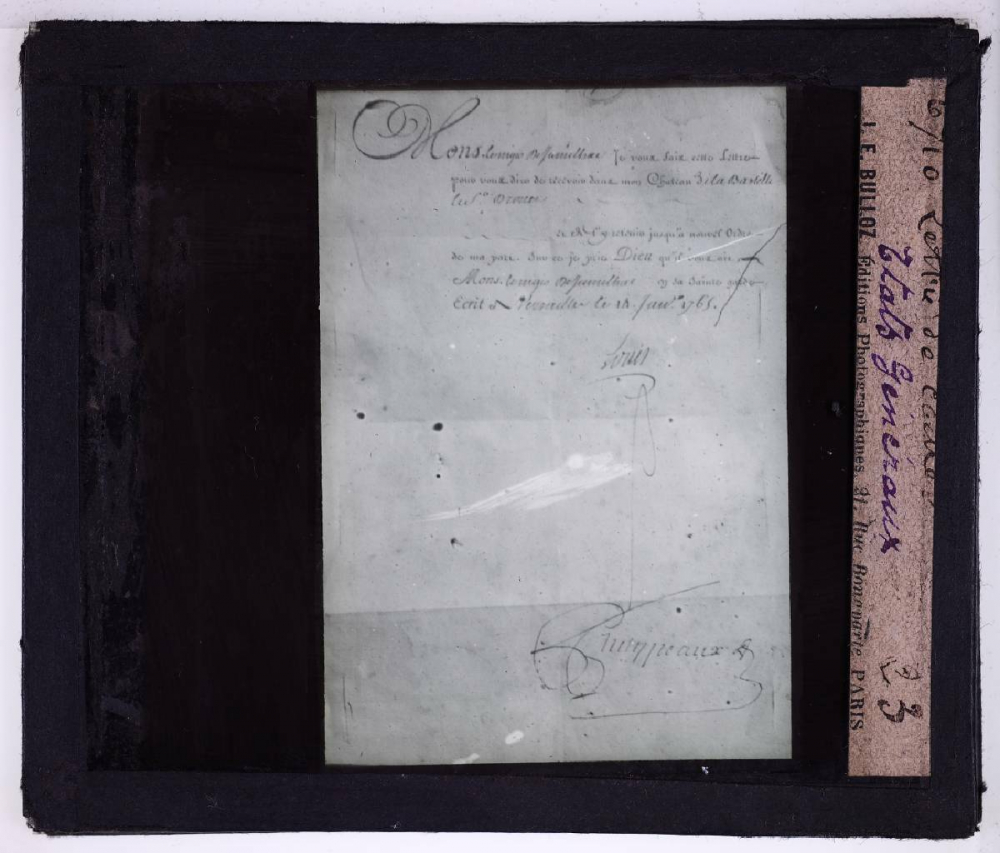 Mons. Je vous fais cette Lettre
pour vous dire de recevoir dans mon Chateau de la Bastille
le Sr
et de l'y retenir jusqu'a nouvel Ordre
de ma part. Sur ce je prie Dieu qu'il vous ait
Mons. en sa Sainte garde
Ecrit a Versailles le 14 Janv. 1765.
Louis
Phelypeaux
Lettre de Cachet
Etats Generaux
23
J. E. BULLOZ, Editions Photographiques, 21, Rue Bonaparte, PARIS